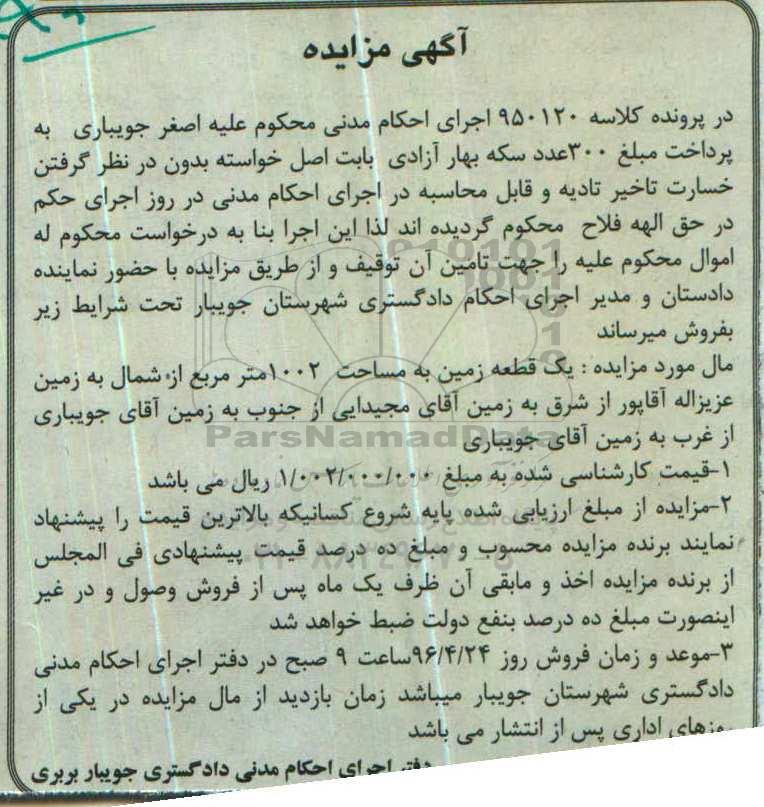 آگهی مزایده
در پرونده کلاسه ۹۵۰۱۲۰ اجرای احکام مدنی محکوم علیه اصغر جویباری به
پرداخت مبلغ ۳۰۰عدد سکه بهار آزادی بابت اصل خواسته بدون در نظر گرفتن
خسارت تاخیر تادیه و قابل محاسبه در اجرای احکام مدنی در روز اجرای حکم
در حق الهه فلاح محکوم گردیده اند لذا این اجرا بنا به درخواست محکوم له
اموال محکوم علیه را جهت تامین آن توقیف و از طریق مزایده با حضور نماینده
دادستان و مدیر اجرای احکام دادگستری شهرستان جویبار تحت شرایط زیر
بفروش میرساند
مال مورد مزایده : یک قطعه زمین به مساحت ۱۰۰۲متر مربع از شمال به زمین
عزیزاله آقاپور از شرق به زمین آقای مجیدایی از جنوب به زمین آقای جویباری
از غرب به زمین آقای جویباری
ParsNamadData
۱-قیمت کارشناسی شده به مبلغ ۱/۰۰۲/۰۰۰/۰۰۰ ریال می باشد
۲-مزایده از مبلغ ارزیابی شده پایه شروع کسانیکه بالاترین قیمت را پیشنهاد
نمایند برنده مزایده محسوب و مبلغ ده درصد قیمت پیشنهادی فی المجلس
از برنده مزایده اخذ و مابقی آن ظرف یک ماه پس از فروش وصول و در غیر
اینصورت مبلغ ده درصد بنفع دولت ضبط خواهد شد
۳-موعد و زمان فروش روز ۹۶/۴/۲۴ساعت ۹ صبح در دفتر اجرای احکام مدنی
دادگستری شهرستان جویبار میباشد زمان بازدید از مال مزایده در یکی از
روزهای اداری پس از انتشار می باشد
دفتر اجرای احکام مدنی دادگستری جویبار بربری